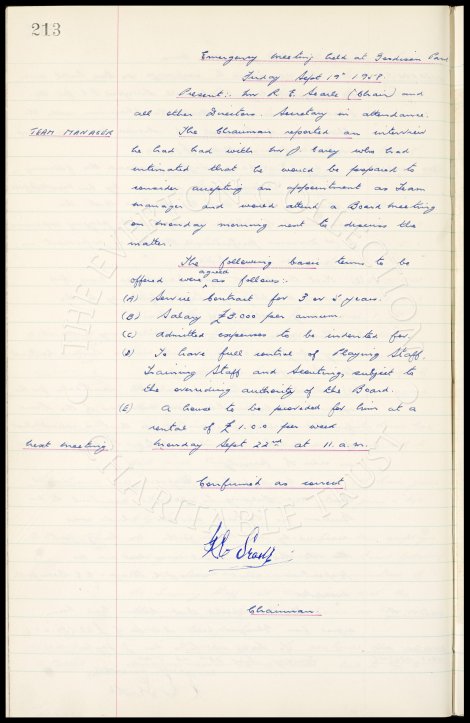 213
Emergency meeting held at Goodison Park
Friday Sept 19th 1958
Present:- Mr R. E. Searle (Chair) and
all other Directors. Secretary in attendance.
TEAM MANAGER The Chairman reported an interview
he had had with Mr J. Carey who had
intimated that he would be prepared to
consider accepting an appointment as Team
manager and would attend a Board meeting
on Monday morning next to discuss the
matter.
The following basic terms to be
offered were agreed as follows:-
(A) Service Contract for 3 or 5 years.
(B) Salary £3.000 per annum.
(C) Admitted expenses to be indented for.
(D) To have full control of Playing Staff,
Training Staff and Scouting, subject to
the overriding authority of the Board.
(E) A house to be provided for him at a
rental of £1.0.0 per week
Next meeting Monday Sept 22nd at 11. a.m.
Confirmed as correct
Chairman.
© THE EVERTON COLLECTION CHARITABLE TRUST